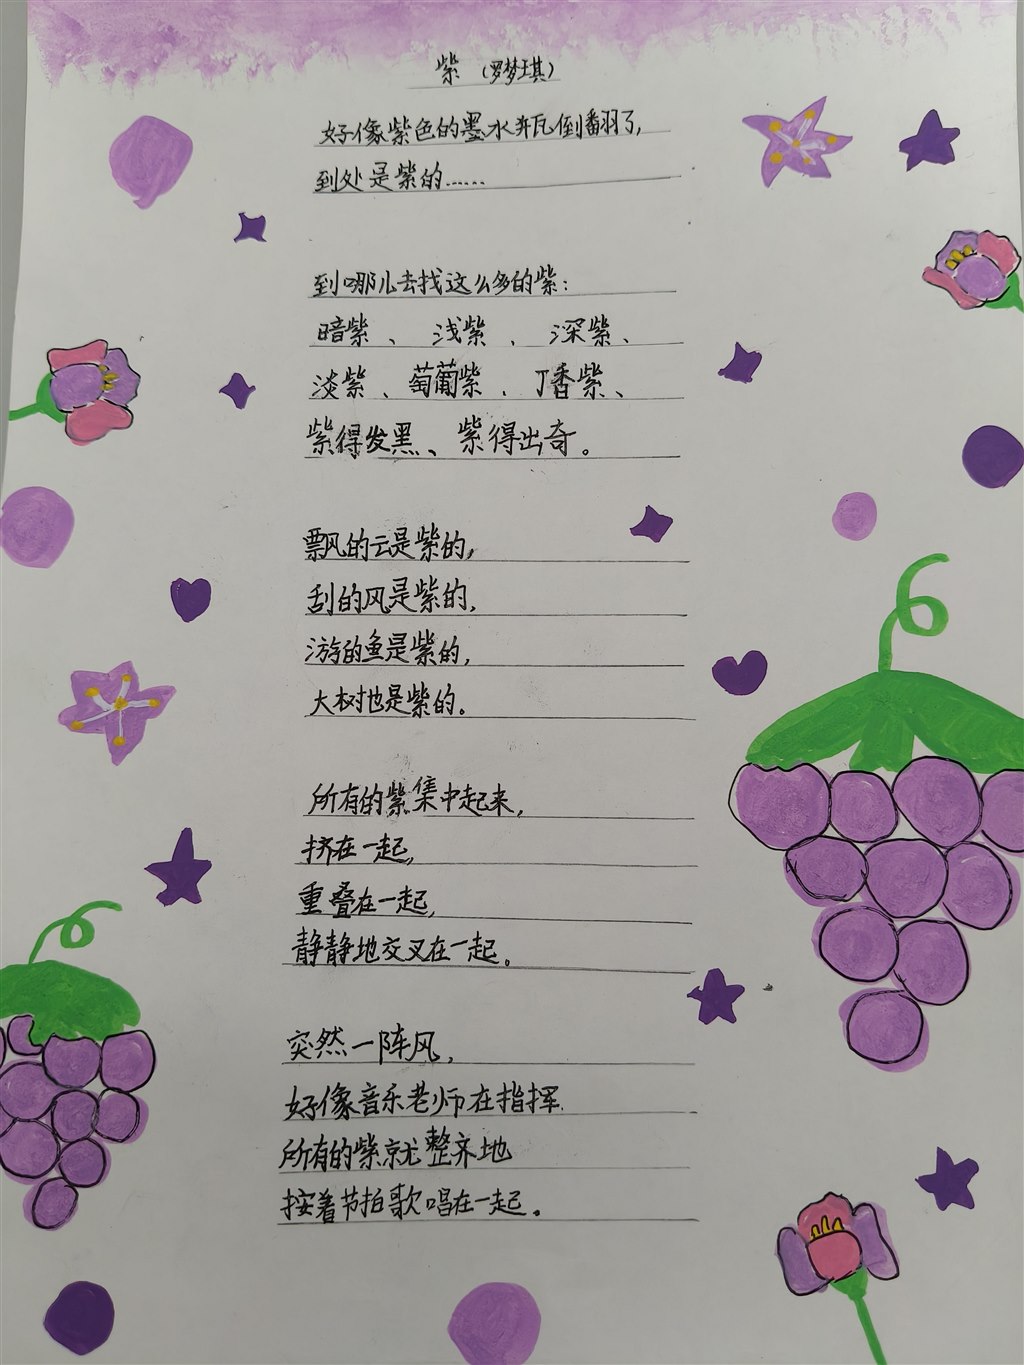 紫 （罗梦琪）
好像紫色的墨水瓶倒翻了，
到处是紫的……
到哪儿去找这么多的紫：
暗紫、浅紫、深紫、
淡紫、萄葡紫、丁香紫、
紫得发黑、紫得出奇。
飘的云是紫的，
刮的风是紫的，
游的鱼是紫的，
大树也是紫的。
所有的紫集中起来，
挤在一起，
重叠在一起，
静静地交叉在一起。
突然一阵风，
好像音乐老师在指挥.
所有的紫就整齐地
按着节拍歌唱在一起。